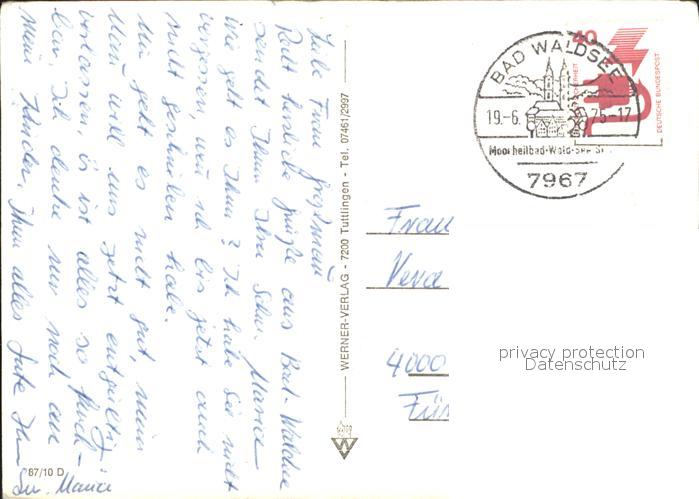 Recht herzliche Grüße aus Bad-Waldsee
sendet Ihnen Ihre Schw. Maria
wie geht es Ihnen? Ich habe Sie nicht
vergessen, wenn ich bis jetzt auch
nicht geschrieben habe.
Mir geht es nicht gut, mein
Mann will uns jetzt entgültig
verlassen, es ist alles so furch-
bar, Ich denke nur noch an
mein Kinder. Ihnen alles Gute Ihre
Schw. Maria
87/10 D
WERNER-VERLAG - 7200 Tuttlingen - Tel. 07461/2997
W
40
DEUTSCHE BUNDESPOST
BAD WALDSEE
19.-6. 75-17
Moorheilbad-Wald-See-St
7967
Frau
Vera
4000
privacy protection
Datenschutz